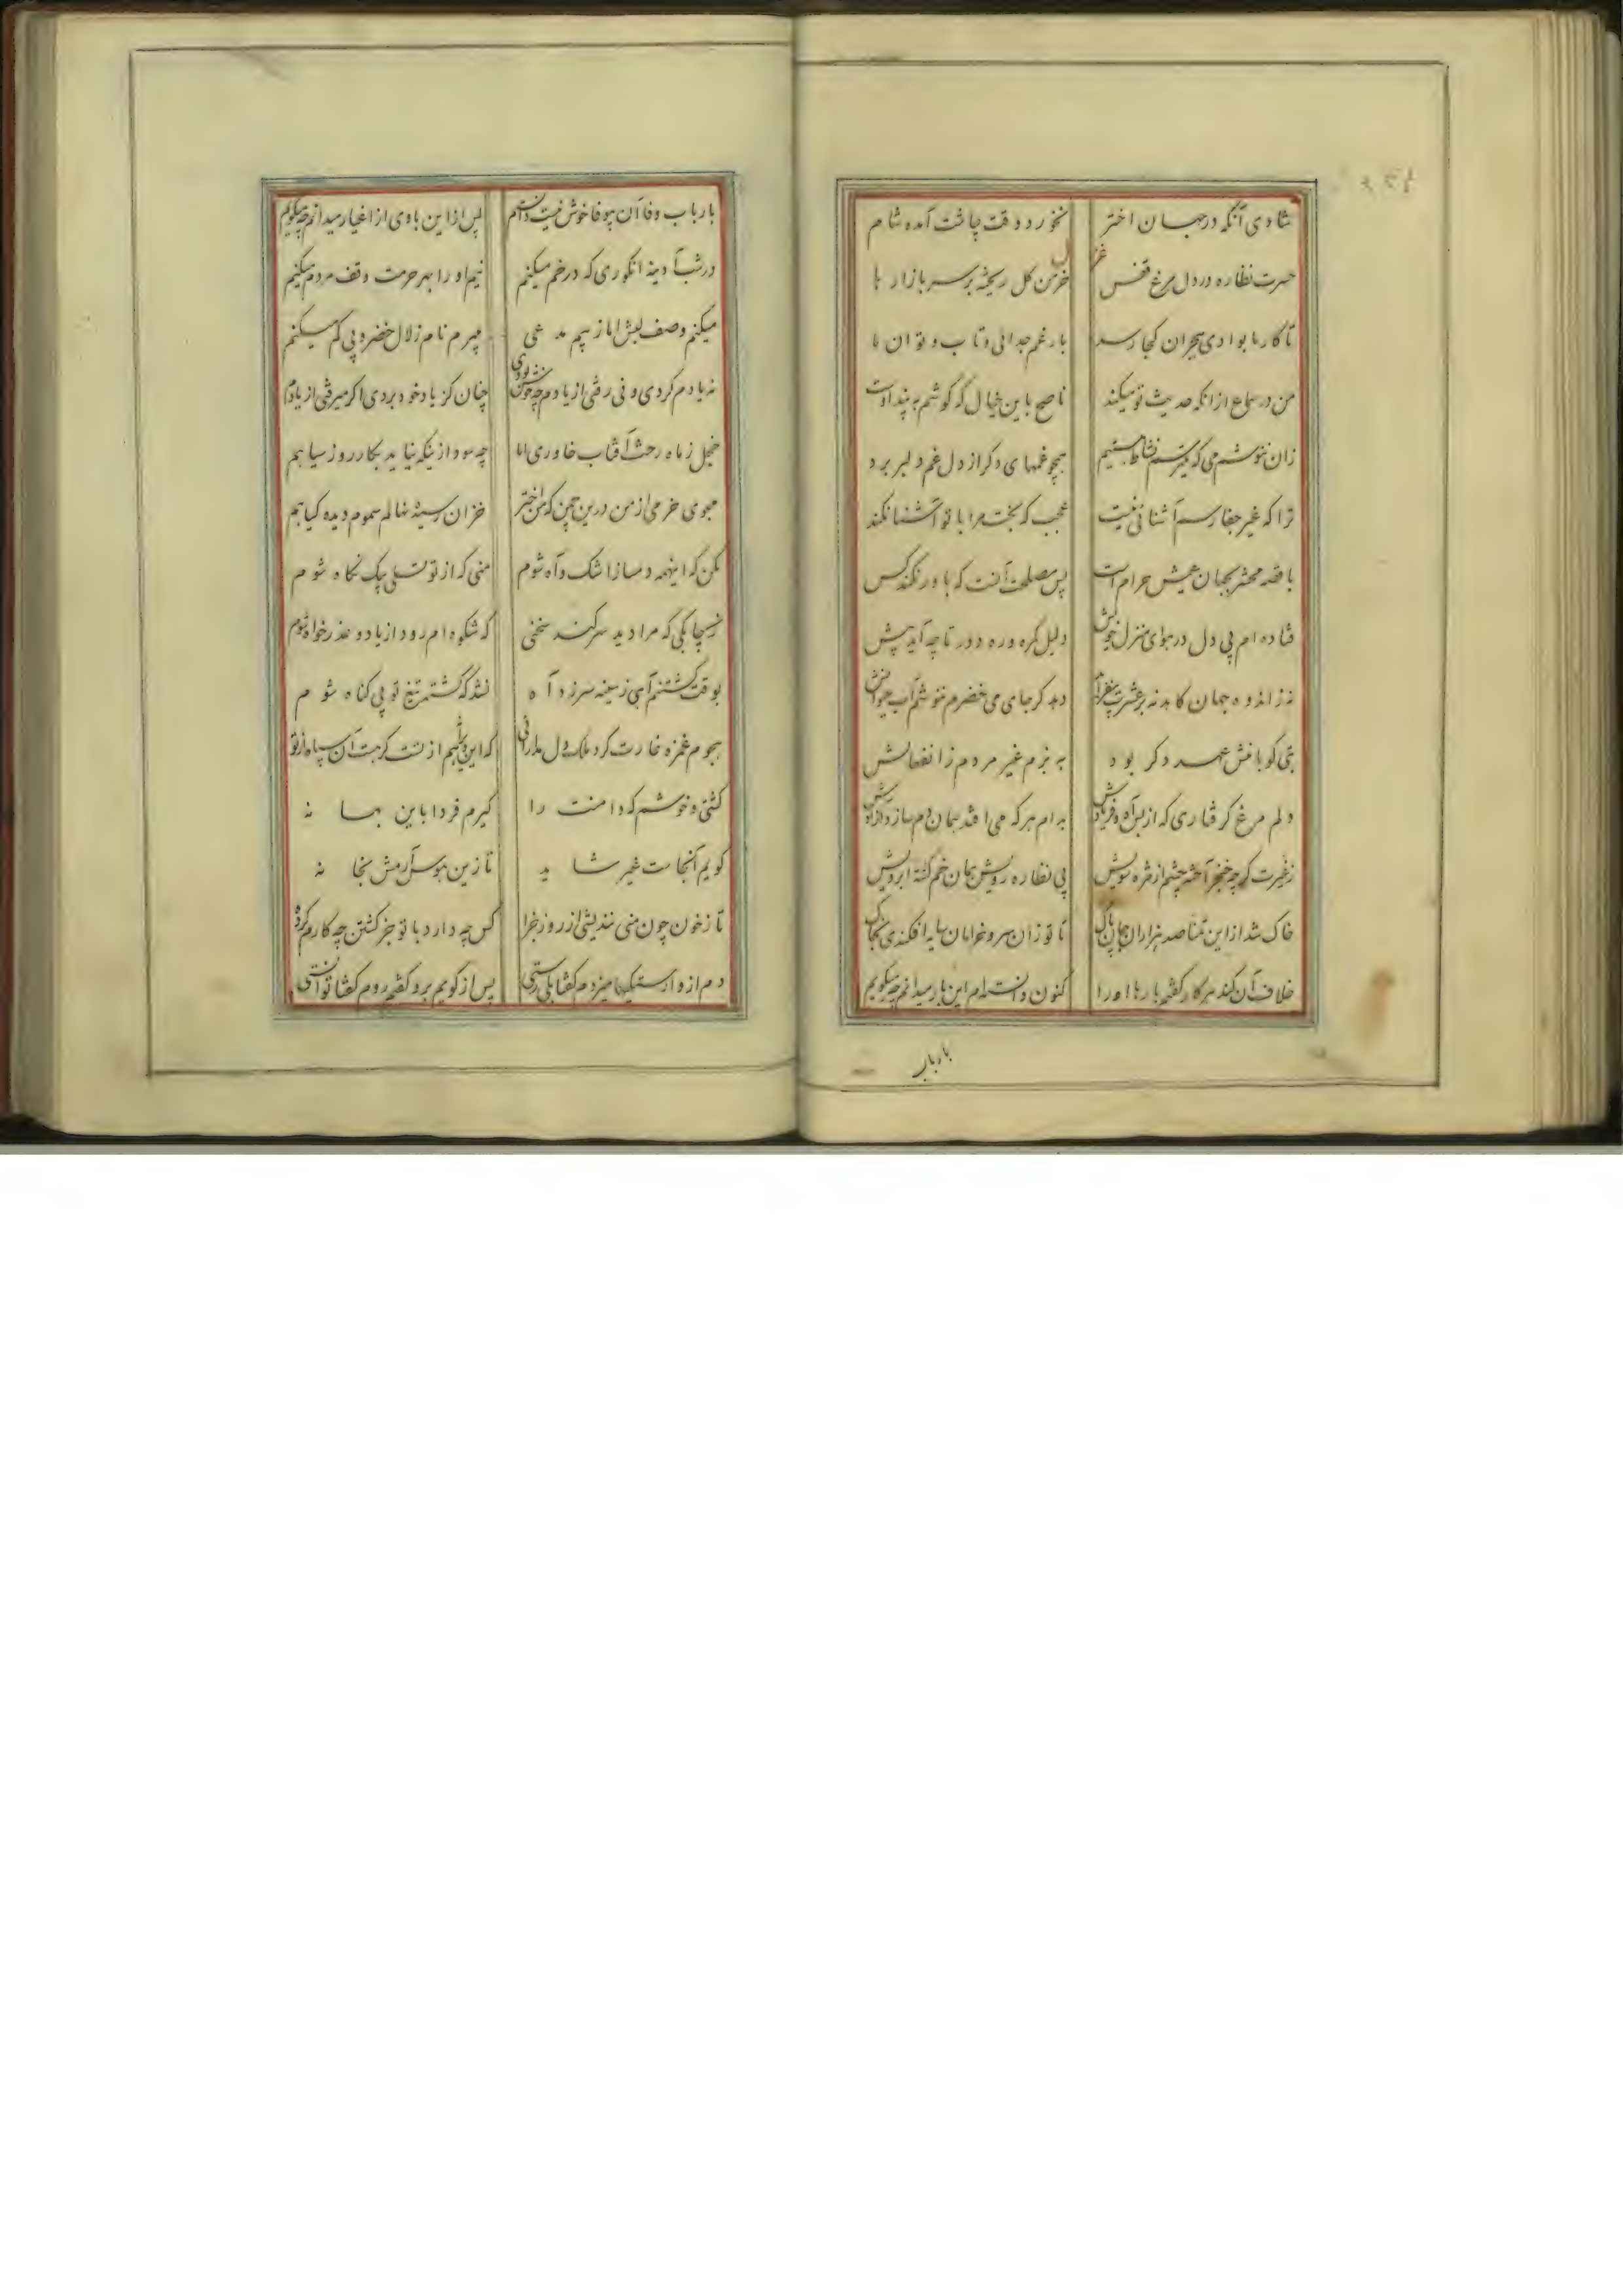 شادی آنکه در جهان اختر نخورد وقت چاشت آمده شام
غزل
حسرت نظاره در دل مرغ قفس خرمن کل ریخته بر سر بازار ها
تا کار ما بوادی هجران کجا رسد بار غم جدائی و تاب و توان ما
من در سماع از انکه حدیث تو میکند ناصح باین خیال که کوشم به پند اوست
زان ننوشم می که میترسم نشاط همچو غمهای دکر از دل غم دلبر برد
ترا که غیر جفا رسم آشنائی نیست عجب که بخت مرا با تو آشنا نکند
با قصه محشر بجهان عیش حرام است پس مصلحت آنست که باور نکند کس
فتاده ام پی دل در هوای منزل خویش دلیل کمره و ره دور تا چه آید پیش
نه ز اندوه جهان کاهد نه بر عشرت دهد کر جای می خضرم ننوشم آب حیوانش
بتی کو با منش عهد دکر بود به بزم غیر مردم ز انفعالش
دلم مرغ کرفتاری که از بس آه و فریادش بدام هر که می افتد همان دم سازد آزادش
ز غیرت کرچه خنجر چشم از مژه سویش پی نظاره رویش همان خم کشته ابرویش
خاک شد از این تمنا صد هزاران جان پاک تا تو زان سرو خرامان سایه افکندی بخاک
خلاف آن کند هر کار کفتم بارها او را کنون دانسته ام این بار میدانم چه میکویم
بارباب
بارباب وفا آن بیوفا خوش نیست دانستم پس از این با وی از اغیار میدانم چه میکویم
در شب آدینه انکوری که در خم میکنم نیم او را بهر حرمت وقف مردم میکنم
میکنم وصف لبش اما ز بیم مدعی میبرم نام زلال خضر و پی کم میکنم
نه یادم کردی و نی رفتی از یادم چه خوش بودی چنان کز یاد خود بردی اکر میرفتی از یادم
خجل ز ماه رخت آفتاب خاوری اما چه سود از اینکه نیاید بکار روز سیاهم
مجوی خرمی از من درین چمن که من اختر خزان رسیده نهالم سموم دیده کیاهم
مکن که اینهمه دمساز اشک و آه شوم منی که از تو تسلی بیک نکاه شوم
که مرا دید سر کند سخنی که شکوه ام رود از یاد و عذر خواه شوم
بوقت کشتنم آهی ز سینه سر زد آه نشد که کشته تیغ تو بی کناه شوم
هجوم غمزه غارت کرد ملک دل از تست کر هست آن سپاه از تو
کشتی و خوشم که دامنت را کیرم فردا باین بهانه
کویم آنجاست غیر شاید تا زین هوس آرمش بخانه
تا ز خون چون منی نندیشی از روز جزا کس چه دارد با تو جز کشتن چه کارم کرده
دم از وارستکیها میزدم کفتا پس از کویم برو کفتم روم کفتا توانستی